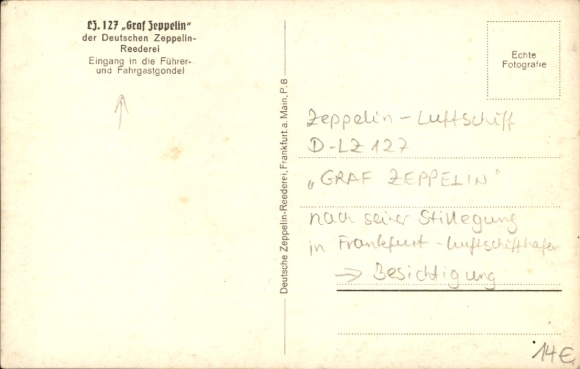 LZ. 127 „Graf Zeppelin"
der Deutschen Zeppelin-
Reederei
Eingang in die Führer-
und Fahrgastgondel
Echte
Fotografie
Deutsche Zeppelin-Reederei, Frankfurt a. Main, P. 8
Zeppelin - Luftschiff
D-LZ 127
„GRAF ZEPPELIN"
nach seiner Stillegung
in Frankfurt - Luftschiffhafen
→ Besichtigung
14€